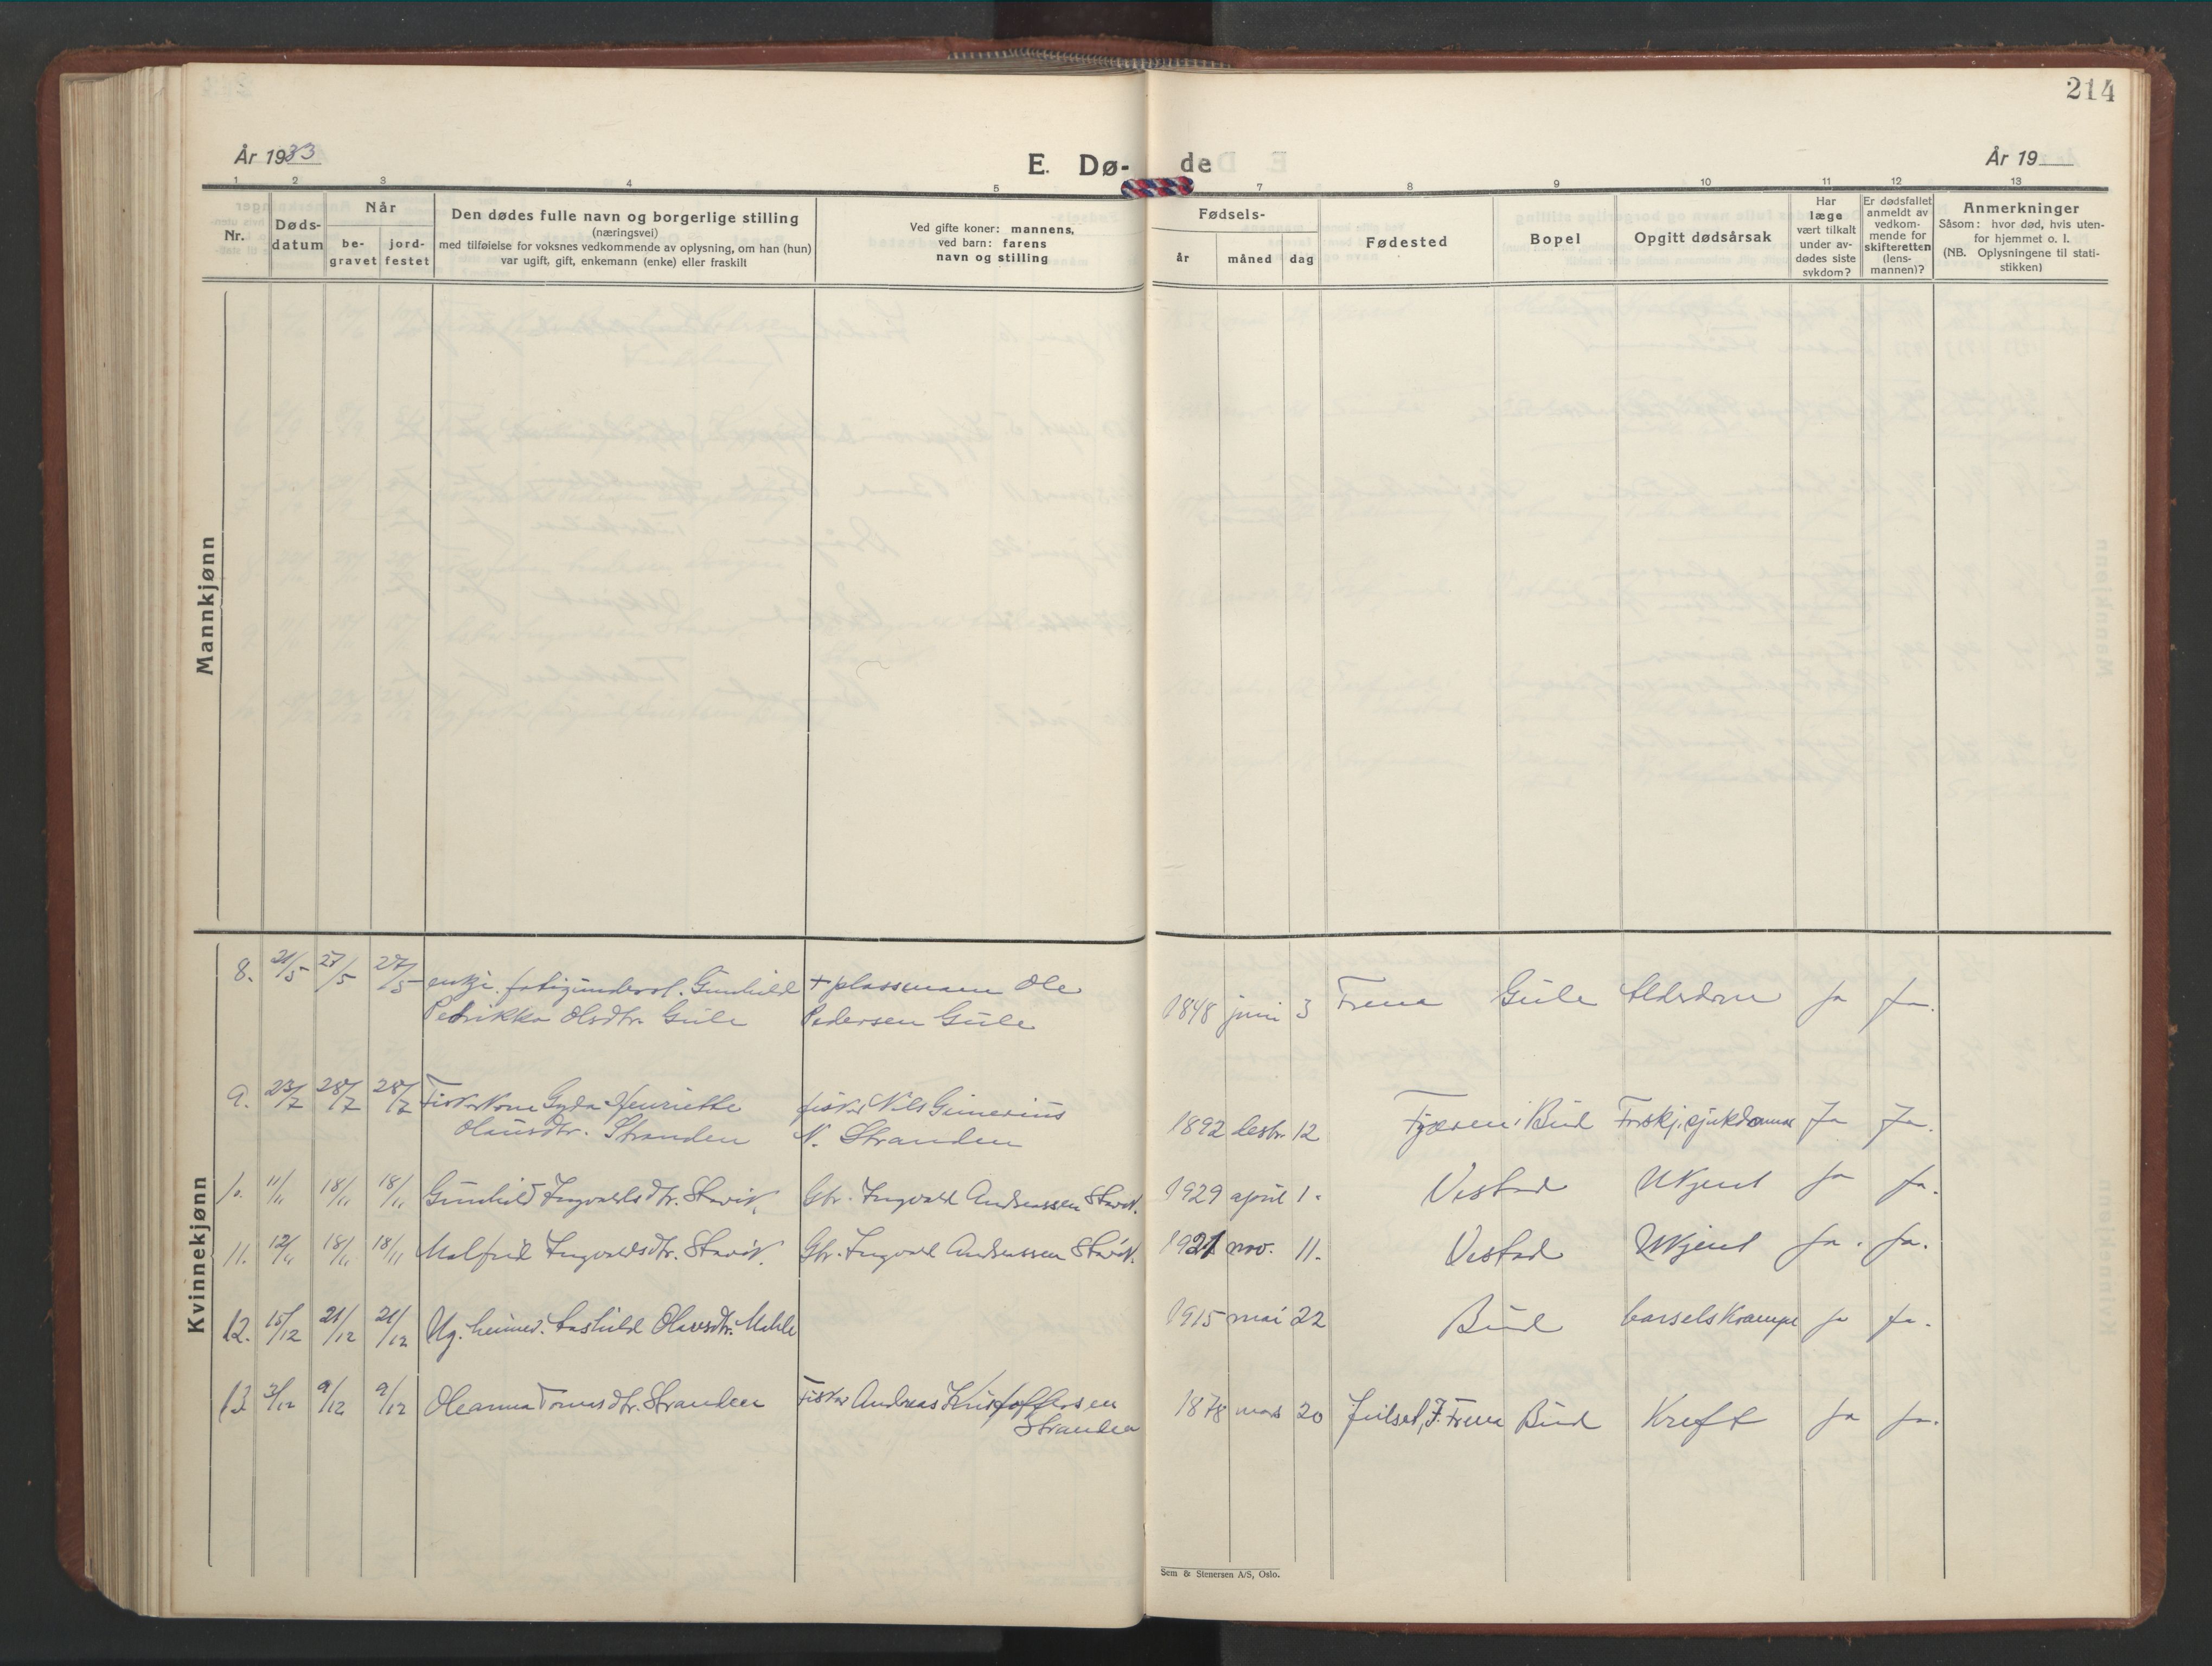 214
År 1933
E. Dø- de
År 19
1 2 3 4 5 7 8 9 10 11 12 13
Nr.
Døds-
datum
Når
be-
gravet
jord-
festet
Den dødes fulle navn og borgerlige stilling
(næringsvei)
med tilføielse for voksnes vedkommende av oplysning, om han (hun)
var ugift, gift, enkemann (enke) eller fraskilt
Ved gifte koner: mannens,
ved barn: farens
navn og stilling
Fødsels-
år måned dag
Fødested
Bopel
Opgitt dødsårsak
Har
læge
vært tilkalt
under av-
dødes siste
sykdom?
Er dødsfallet
anmeldt av
vedkom-
mende for
skifteretten
(lens-
mannen)?
Anmerkninger
Såsom: hvor død, hvis uten-
for hjemmet o. l.
(NB. Oplysningene til stati-
stikken)
Mannkjønn
Kvinnekjønn
8. 21/5 27/5 27/5 enkje. fatigunderst. Gunhild + plassmann Ole
Pedrikka Olsdtr. Gule Pedersen Gule
1848 juni 3 Frena Gule Alderdom ja ja.
9. 23/7 28/7 28/7 Fiskarkone Gyda Henriette fiskar Nils Gunerius
Olausdtr. Stranden N. Stranden
1892 12 Bud Forskj. sjukdommar Ja Ja.
10. 11/11 18/11 18/11 Gunhild Ingvaldsdtr. Stavik. Gbr. Ingvald Andreassen Stavik.
1929 april 1. Vestad Ukjent ja ja.
11. 12/11 18/11 18/11 Malfrid Ingvaldsdtr. Stavik. Gbr. Ingvald Andreassen Stavik.
1921 nov. 11. Vestad Ukjent ja. ja.
12. 15/12 21/12 21/12 Ug. heimev. Olavsdtr. Male
1915 mai 22 Bud barselskrampe ja ja.
13. 3/12 9/12 9/12 Oleanna Tomasdtr. Stranden Fiskar Andreas Kristoffersen
Stranden
1878 mars 20 Julset, i Frena Bud Kreft ja ja.
Sem & Stenersen A/S, Oslo.